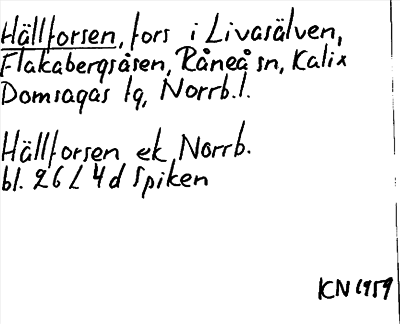 Hällforsen, fors i Livasälven,
Flakabergsåsen, Råneå sn, Kalix
Domsagas tg, Norrb. l.
Hällforsen ek Norrb.
bl. 26 L 4 d Spiken
KN 1959